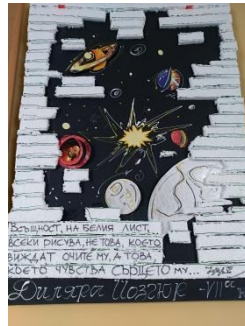 Всъщност, на белия лист,
всеки рисува, не това, което
виждат очите му, а това
което чувства сърцето му...
Диляра Йозгюр - VIII